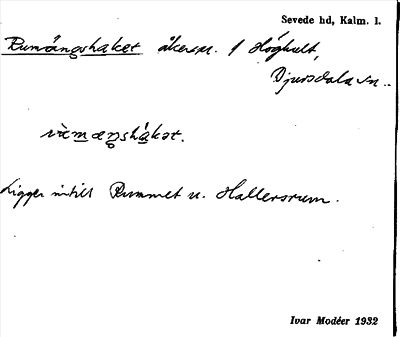 Sevede hd, Kalm. l.
Rumängshaket åkerm. 1 Höghult,
Djursdala sn..
Ligger intill Rummet u. Hallersrum.
Ivar Modéer 1932